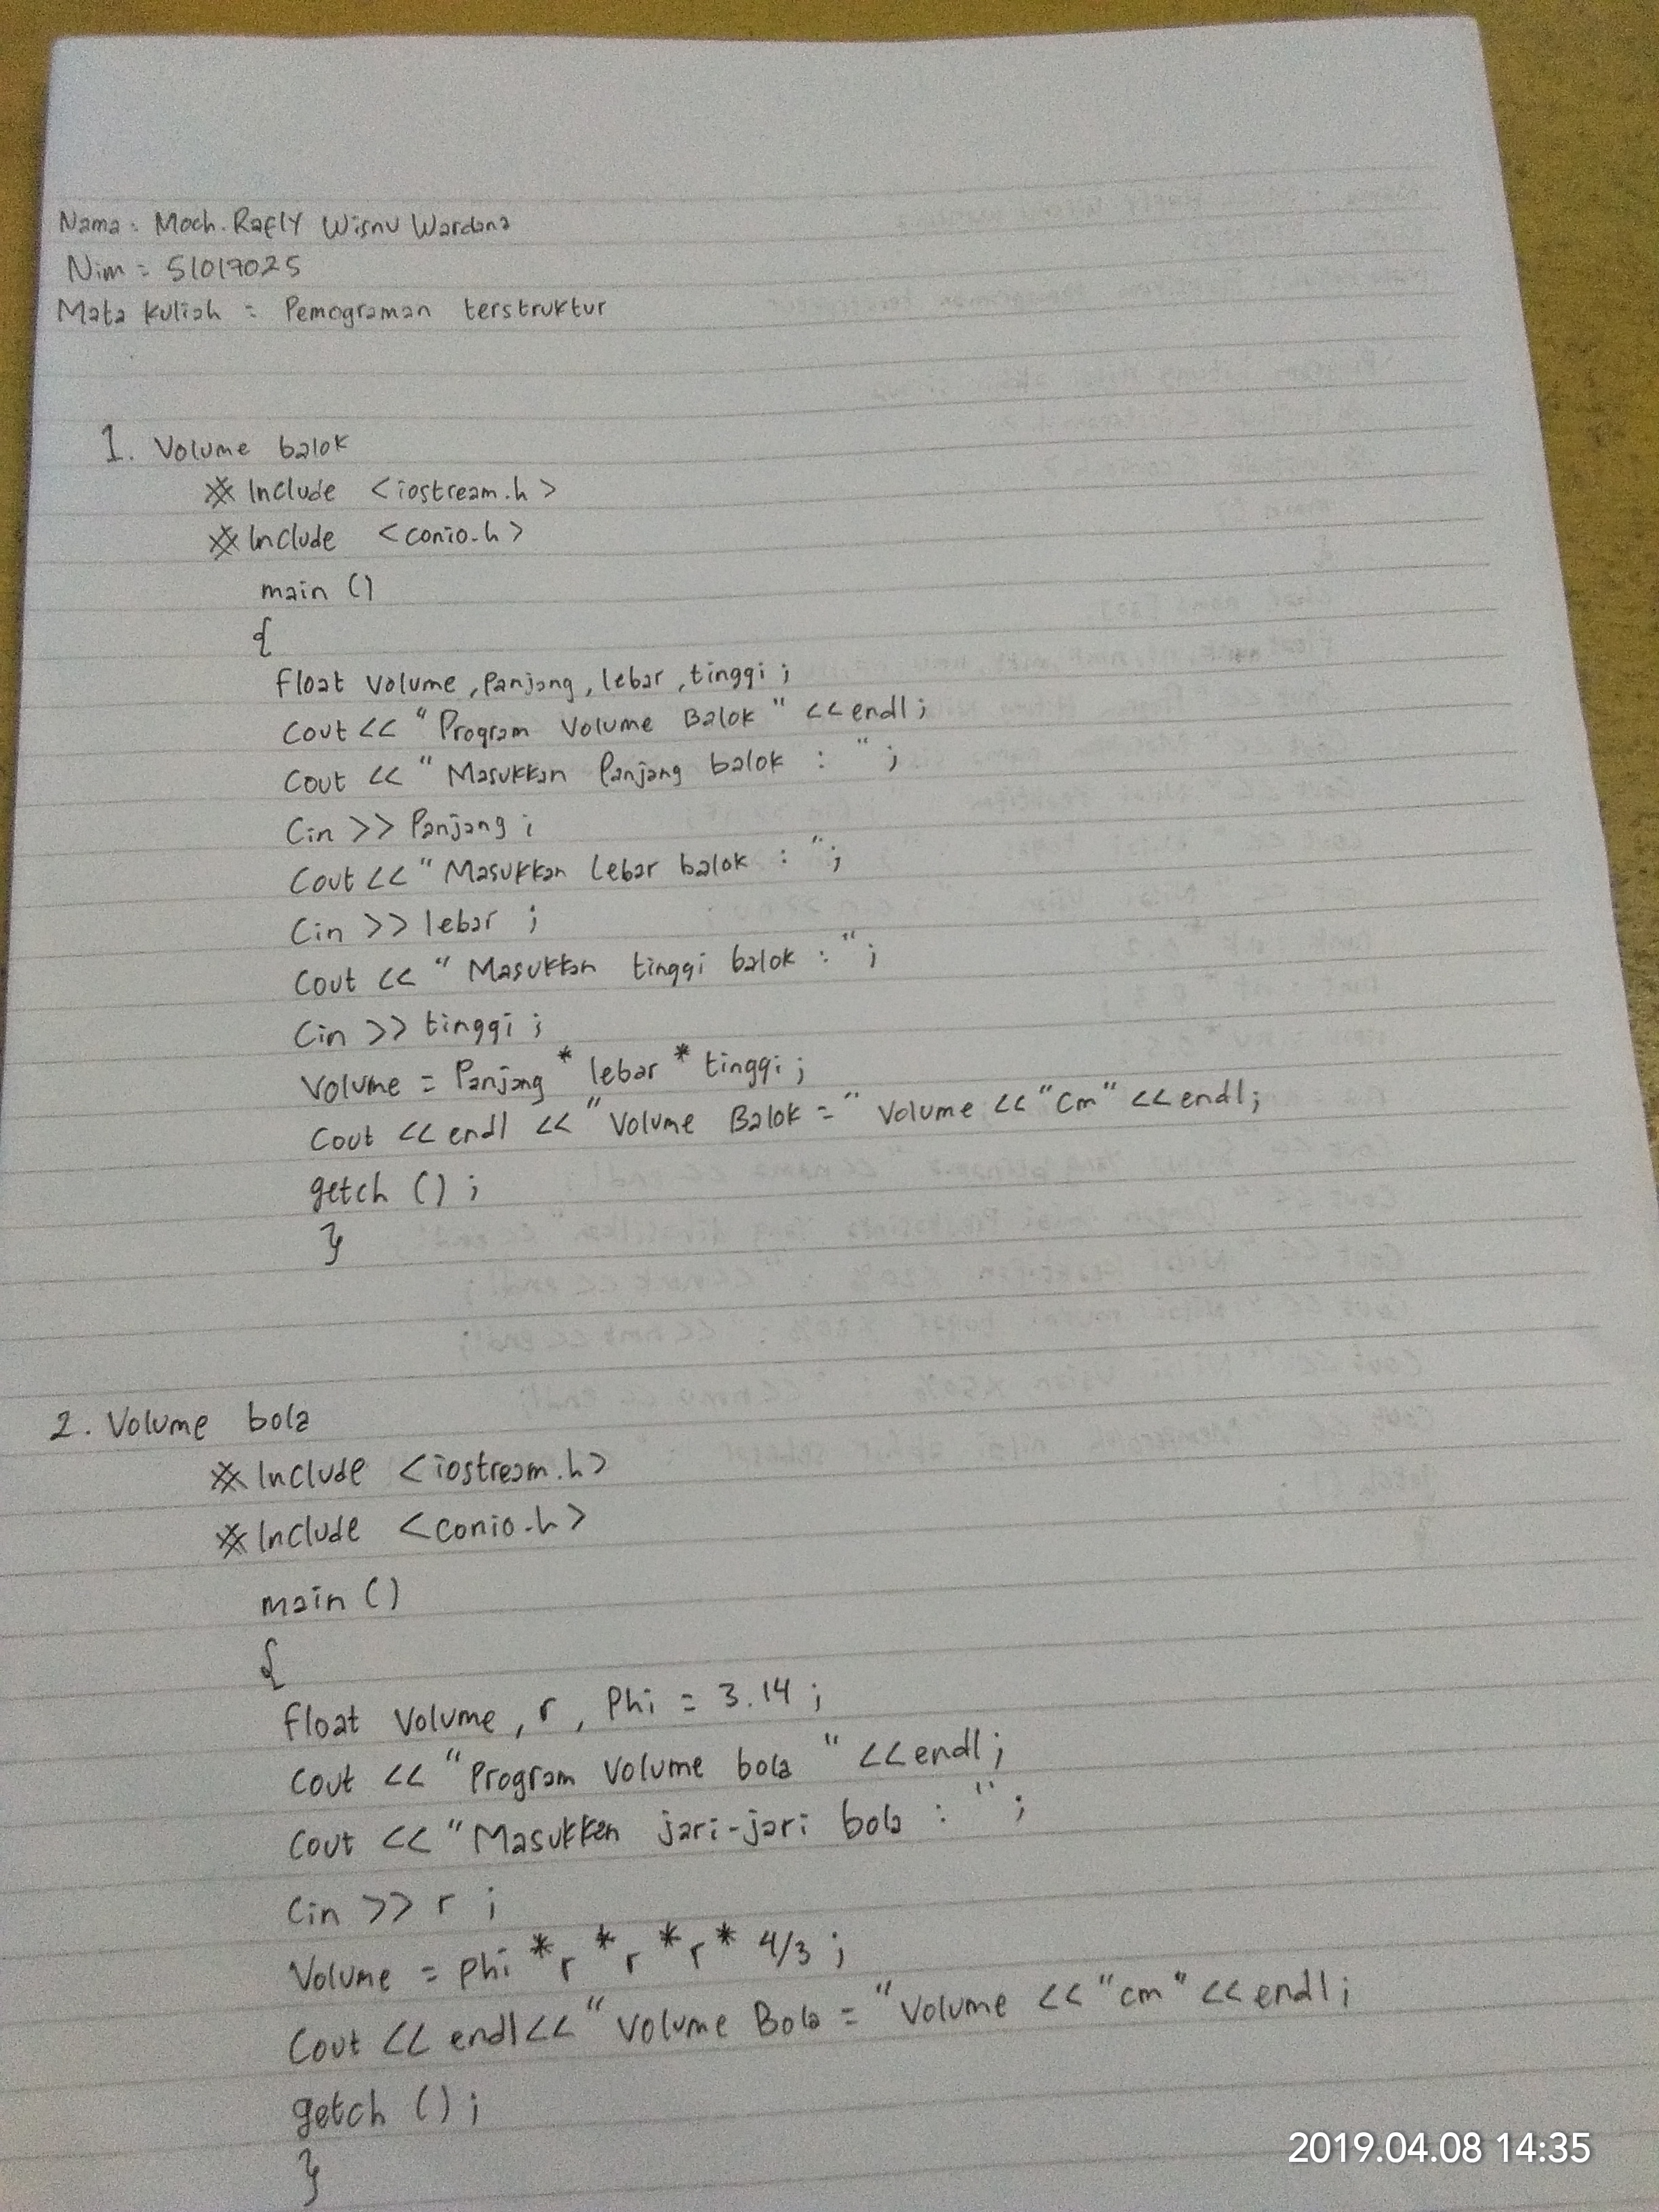 Nama : Moch. Rafly Wisnu Wardana
Nim = 51017025
Mata kuliah = Pemograman terstruktur
1. Volume balok
# Include <iostream.h>
# Include <conio.h>
main ()
{
float volume, Panjang, lebar, tinggi ;
Cout << "Program Volume Balok" << endl ;
Cout << "Masukkan Panjang balok : " ;
Cin >> Panjang ;
Cout << "Masukkan Lebar balok : " ;
Cin >> lebar ;
Cout << "Masukkan tinggi balok : " ;
Cin >> tinggi ;
Volume = Panjang * lebar * tinggi ;
Cout << endl << "Volume Balok = " Volume << "Cm" << endl ;
getch () ;
}
2. Volume bola
# Include <iostream.h>
# Include <conio.h>
main ()
{
float Volume, r, Phi = 3.14 ;
Cout << "Program Volume bola " << endl ;
Cout << "Masukken jari-jari bola : " ;
Cin >> r ;
Volume = phi * r * r * r * 4/3 ;
Cout << endl << "Volume Bola = " Volume << "cm" << endl ;
getch () ;
}
2019.04.08 14:35